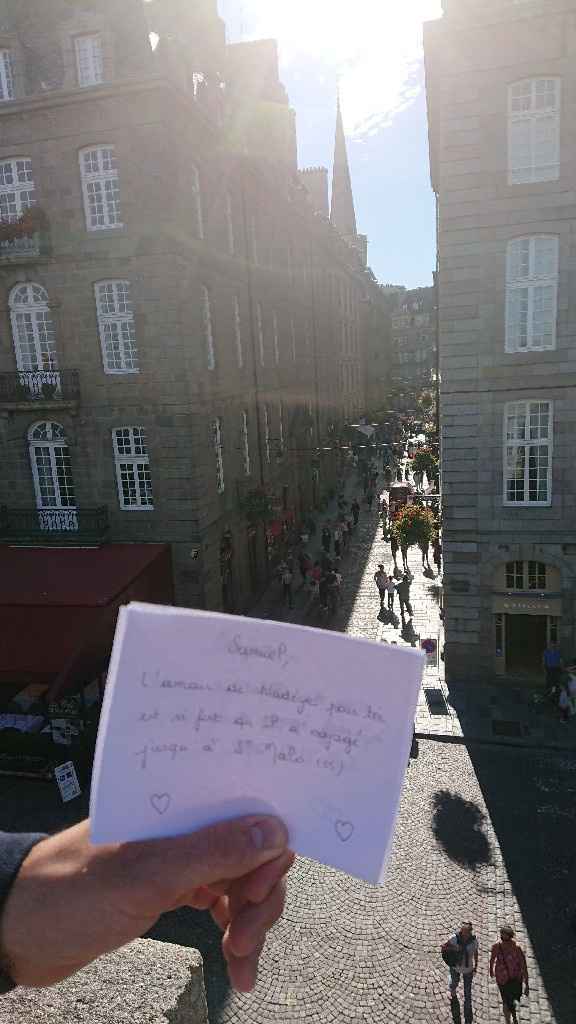 Samuel,
L'amour de Nadège pour toi
est si fort qu'il a voyagé
jusqu'à St Malo (35)